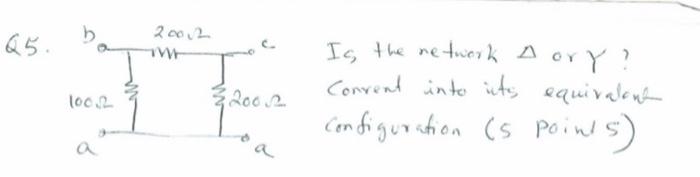 Q5. b 200Ω c Is the network Δ or Y?
100Ω 200Ω Convert into its equivalent
a a configuration (5 points)